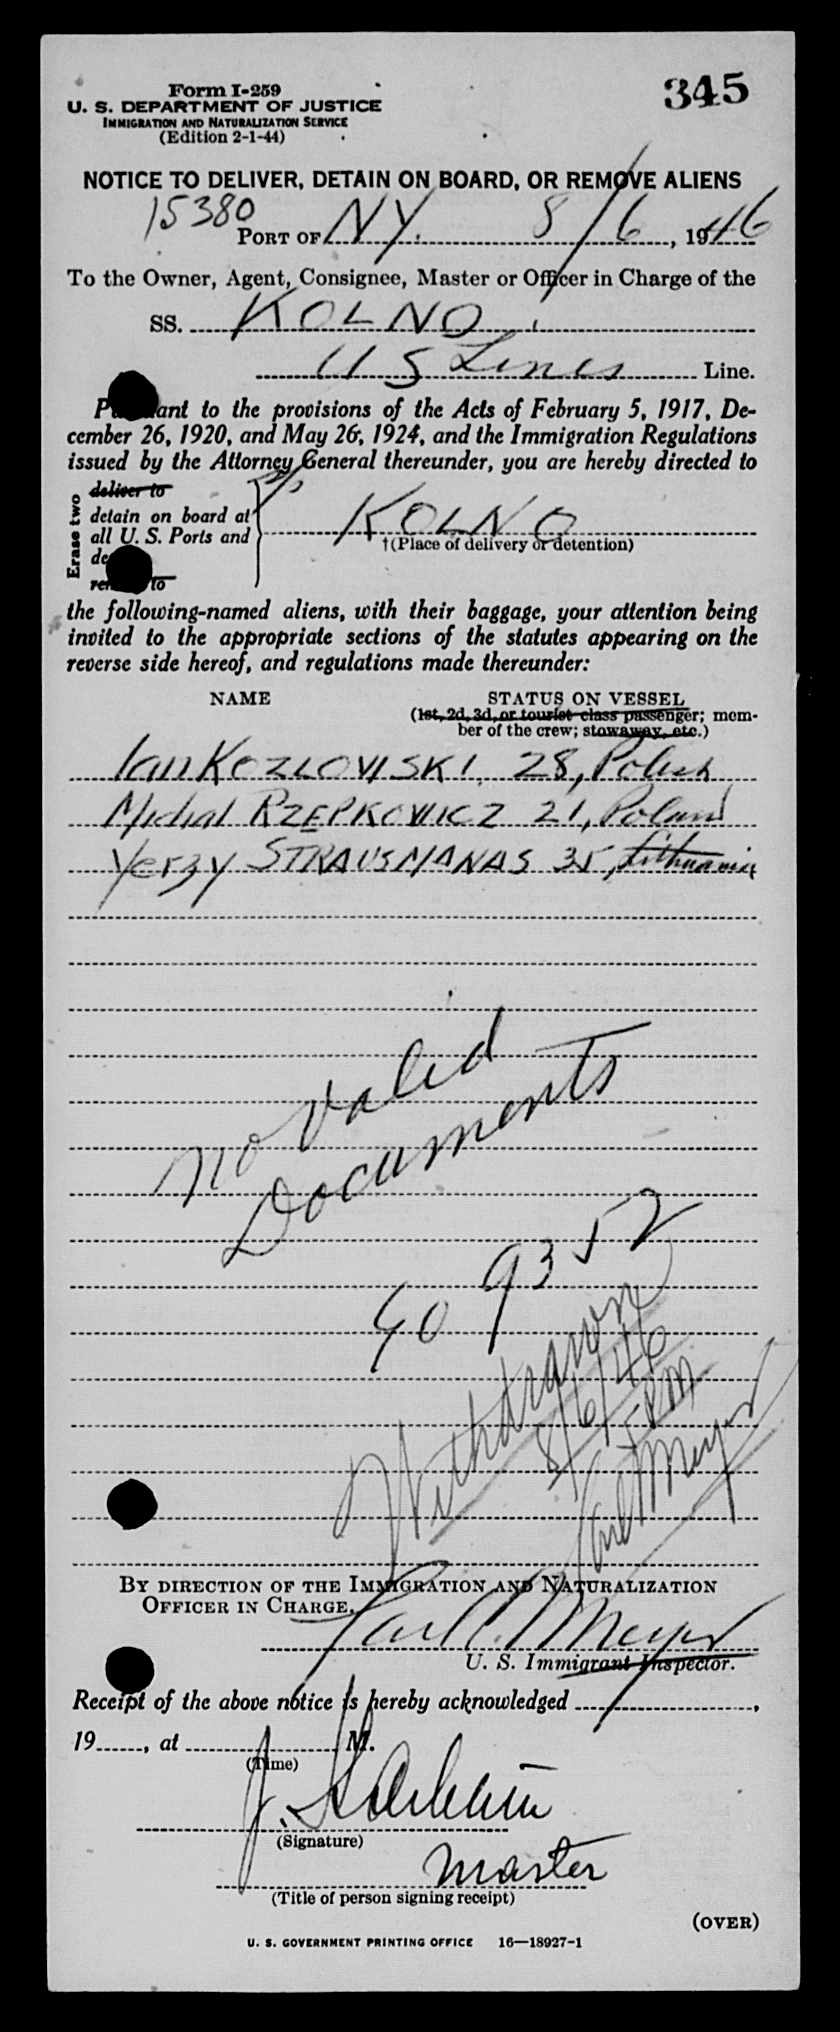 345
Form I-259
U. S. DEPARTMENT OF JUSTICE
IMMIGRATION AND NATURALIZATION SERVICE
(Edition 2-1-44)
NOTICE TO DELIVER, DETAIN ON BOARD, OR REMOVE ALIENS
15380
PORT OF NY. 8/6, 1946
To the Owner, Agent, Consignee, Master or Officer in Charge of the
SS. KOLNO
US Lines Line.
Pursuant to the provisions of the Acts of February 5, 1917, De-
cember 26, 1920, and May 26, 1924, and the Immigration Regulations
issued by the Attorney General thereunder, you are hereby directed to
Erase two
deliver to
detain on board at
all U. S. Ports and
KOLNO
†(Place of delivery or detention)
to
the following-named aliens, with their baggage, your attention being
invited to the appropriate sections of the statutes appearing on the
reverse side hereof, and regulations made thereunder:
NAME STATUS ON VESSEL
(1st, 2d, 3d, or tourist class passenger; mem-
ber of the crew; stowaway, etc.)
Ian KOZLOWSKI, 28, Polish
Michal RZEPKOWICZ 21, Poland
Yerzy STRAUSMANAS 35, Lithuania
no valid
Documents
GO 9352
Withdrawn
8/6/46
5 PM
Carl Meyer
BY DIRECTION OF THE IMMIGRATION AND NATURALIZATION
OFFICER IN CHARGE,
Meyer
U. S. Immigrant Inspector.
Receipt of the above notice is hereby acknowledged ,
19 , at M.
(Time)
J.
(Signature)
master
(Title of person signing receipt)
(OVER)
U. S. GOVERNMENT PRINTING OFFICE 16—18927-1